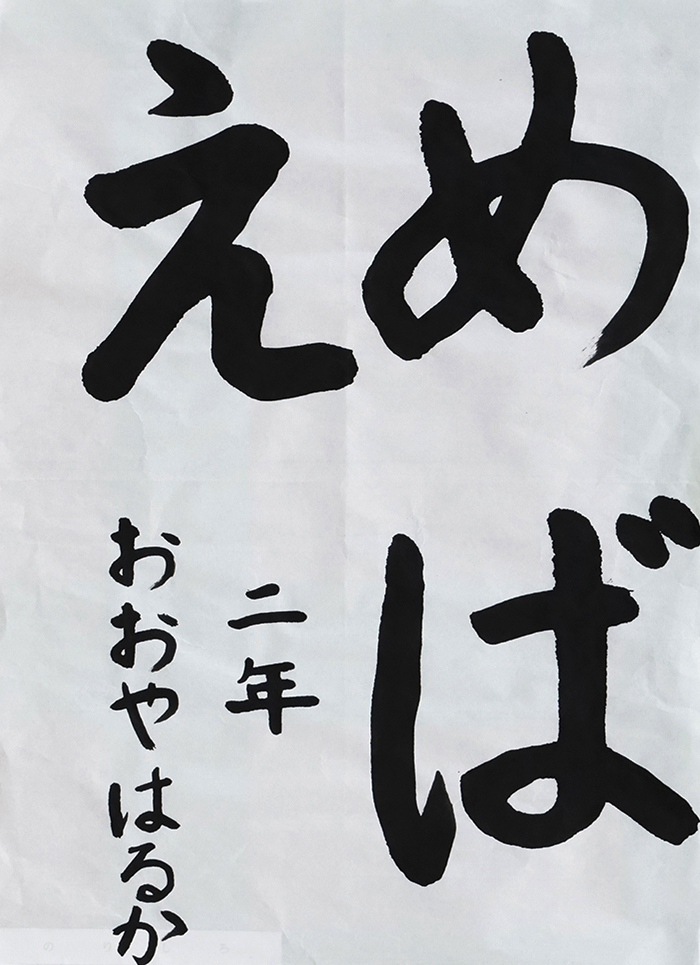 めば
え
二年
おおやはるか